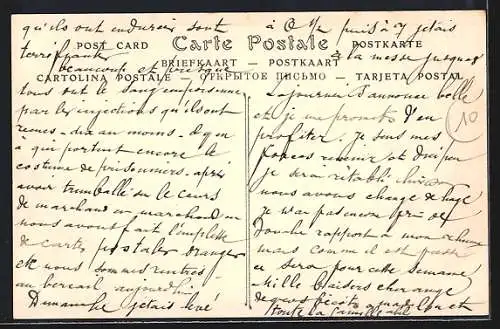 qu'ils ont endurées sont
terrifiantes
POST CARD
beaucoup et
tous ont le sang empoisonné
par les injections qu'ils ont
reçues - dix au moins. Il y en
a qui portent encore le
costume de prisonniers. après
avoir sur le cours
de marchand en marchand
nous avons fait l'emplette
de cartes postales
et nous sommes rentrés
au bercail aujourd'hui
Dimanche j'étais levé
Carte Postale
POSTKARTE
BRIEFKAART — POSTKAART
CARTOLINA POSTALE — ОТКРЫТОЕ ПИСЬМО — TARJETA POSTAL
à puis à 7 j'étais
à la messe jusqu'à
Le séjour s'annonce belle
et je me promets d'en
profiter. je sens mes
forces revenir et
je serai rétabli
nous avons changé de
je n'ai pas encore pris de
douche rapport à mon rhume
mais comme il est passé
ce sera pour cette semaine
Mille baisers
de gros bécots
toute la famille
10